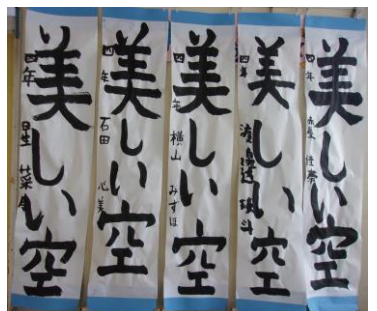 美しい空
四年
美しい空
四年 渡邉
美しい空
四年 横山 みずほ
美しい空
四年 石田 心美
美しい空
四年 星